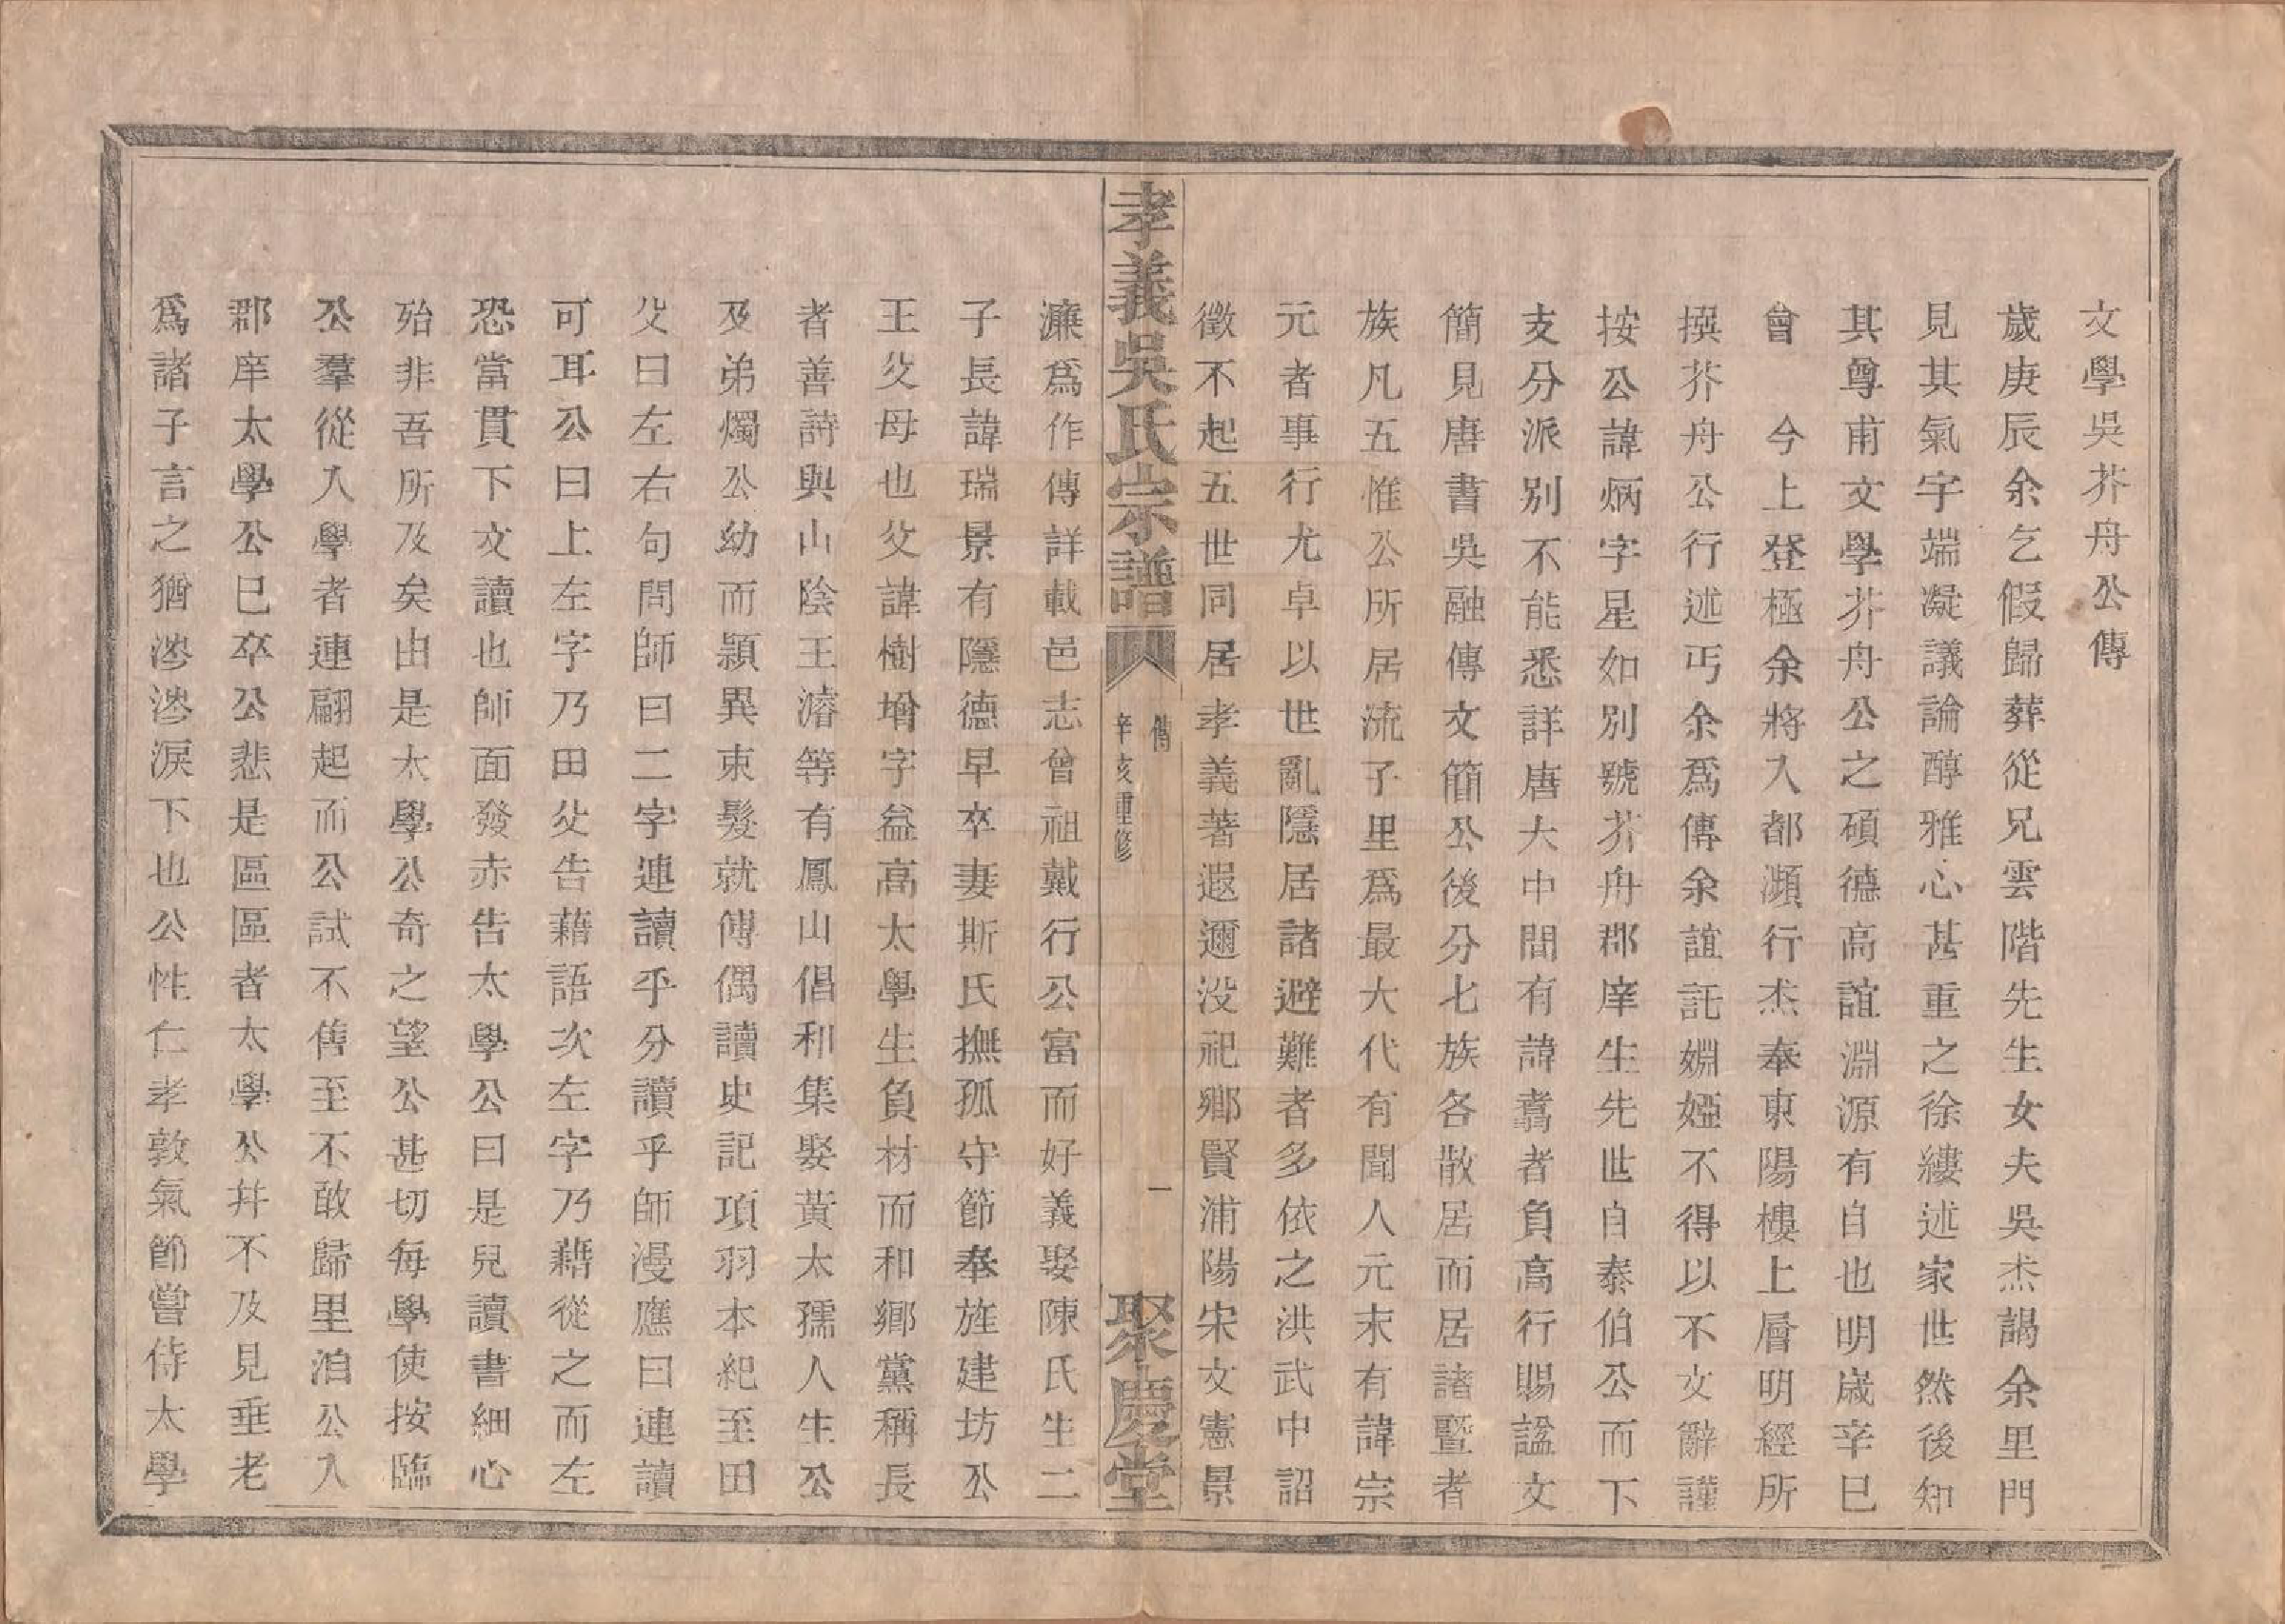 文學吳芥舟公傳
歲庚辰余乞假歸葬從兄雲階先生女夫吳杰謁余里門
見其氣宇端凝議論醇雅心甚重之徐縷述家世然後知
其尊甫文學芥舟公之碩德高誼淵源有自也明歲辛巳
會　今上登極余將入都瀕行杰奉東陽樓上層明經所
撰芥舟公行述丐余爲傳余誼託婣婭不得以不文辭謹
按公諱炳字星如別號芥舟郡庠生先世自泰伯公而下
支分派別不能悉詳唐大中間有諱翥者負高行賜諡文
簡見唐書吳融傳文簡公後分七族各散居而居諸暨者
族凡五惟公所居流子里爲最大代有聞人元末有諱宗
元者事行尤卓以世亂隱居諸避難者多依之洪武中詔
徵不起五世同居孝義著遐邇没祀鄉賢浦陽宋文憲景
孝義吳氏宗譜
傳
辛亥重修
一
聚慶堂
濂爲作傳詳載邑志曾祖戴行公富而好義娶陳氏生二
子長諱瑞景有隱德早卒妻斯氏撫孤守節奉旌建坊公
王父母也父諱樹增字益高太學生負材而和鄉黨稱長
者善詩與山陰王濬等有鳳山倡和集娶黃太孺人生公
及弟燭公幼而穎異束髮就傅偶讀史記項羽本紀至田
父曰左右句問師曰二字連讀乎分讀乎師漫應曰連讀
可耳公曰上左字乃田父告藉語次左字乃藉從之而左
恐當貫下文讀也師面發赤告太學公曰是兒讀書細心
殆非吾所及矣由是太學公奇之望公甚切每學使按臨
公羣從入學者連翩起而公試不售至不敢歸里洎公入
郡庠太學公已卒公悲是區區者太學公幷不及見垂老
爲諸子言之猶滲滲淚下也公性仁孝敦氣節嘗侍太學